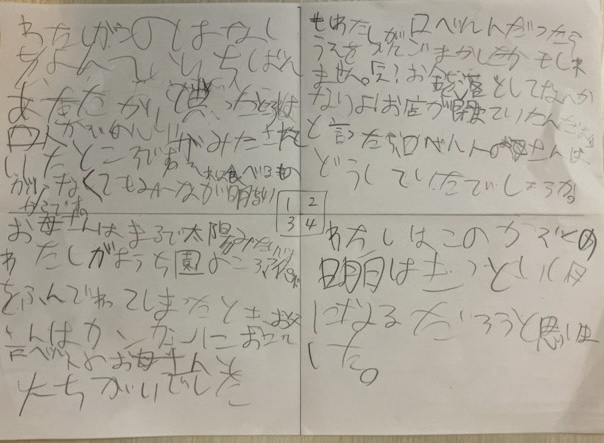 わたしがこのはなし
をよんでいちばん
あたたかいと思ったところは
ロベルトが
いったところです。食べもの
がなくてもみんなが明るい
からです。
もしわたしがロベルトだったら
うそをついてごまかしたかもしれ
ません。
なりよお店が閉まっていたんだ
と言ったらロベルトのお母さんは
どうしていたでしょうか。
1 2
3 4
お母さんはまるで太陽みたい
わたしがようち園のころ
をふんでわってしまったときお父
さんはカンカンにおこって
ロベルトのお母さんと
大ちがいでした
わたしはこのかぞくの
明日はきっといい日
になるだろうと思いま
した。